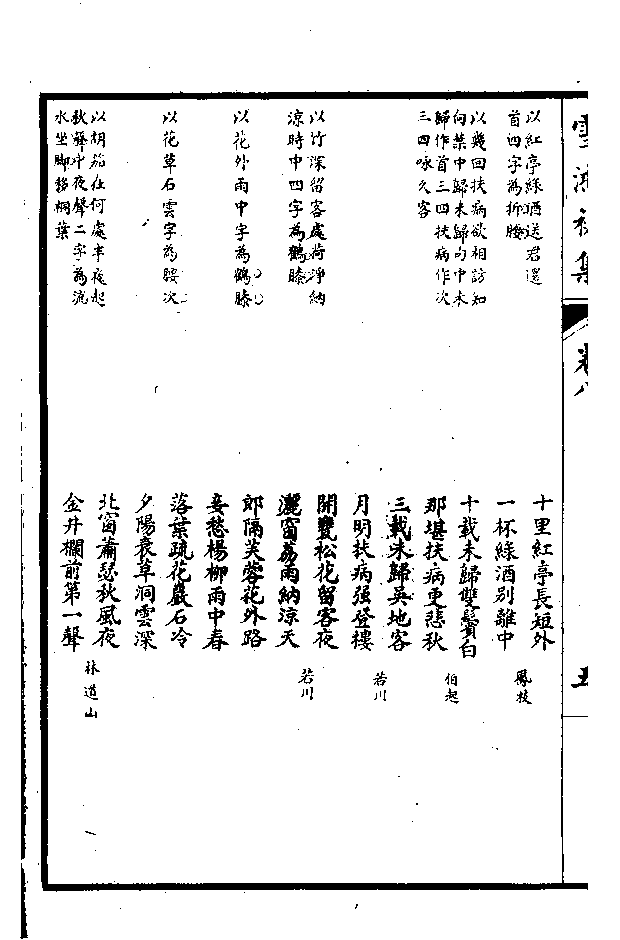 卷八
五
以紅亭綠酒送君還
首四字為折腰
十里紅亭長短外
一杯綠酒別離中
鳳枝
以幾回扶病欲相訪知
向葉中歸未歸句中未
歸作首三四扶病作次
三四咏久客
十載未歸雙鬢白
那堪扶病更悲秋
伯起
三載未歸吳地客
月明扶病强登樓
若川
以竹深留客處荷淨納
涼時中四字為鶴膝
開甕松花留客夜
灑窗荔雨納涼天
若川
以花外雨中字為鶴膝
郎隔芙蓉花外路
妾愁楊柳雨中春
以花草石雲字為腰次
落葉疏花巖石冷
夕陽衰草洞雲深
以胡笳在何處半夜起
秋聲中夜聲二字為流
水坐脚格桐葉
北窗蕭瑟秋風夜
金井欄前第一聲
林道山